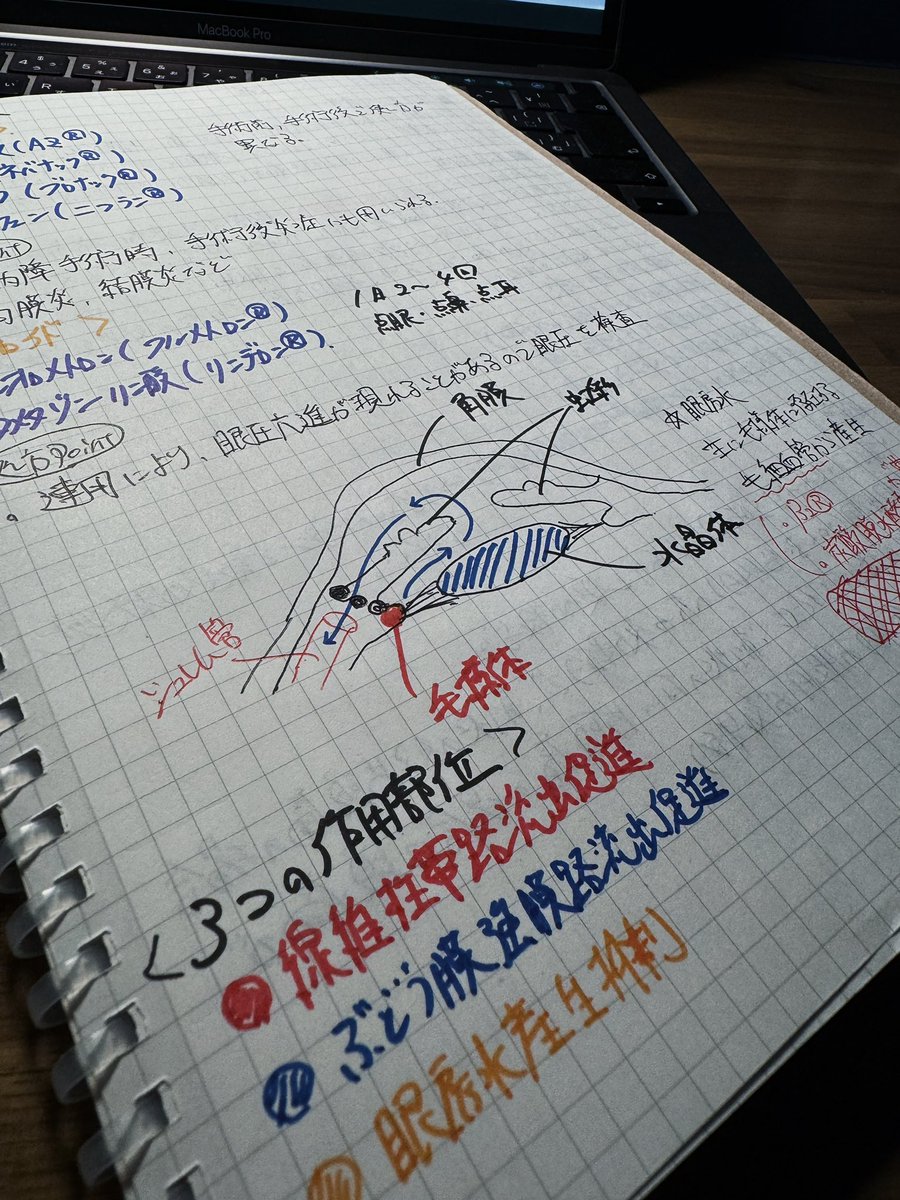 MacBook Pro
手術前、手術後で使い方が
異なる。
(AZ®)
ネバナック®)
(ブロナック®)
フェン(ニフラン®)
内障手術時、手術後炎症にも用いられる.
膜炎、結膜炎など
1日2〜4回
点眼・点鼻・点耳
オロメトロン(フルメトロン®)
メタゾンリン酸(リンデロン®).
処方Point
。連用により、眼圧亢進が現れることがあるので眼圧を検査
角膜
虹彩
☆眼房水
主に毛様体に存在する
毛細血管から産生
・β2®
水晶体
シュレム管
毛様体
<3つの作用部位>
線維柱帯路流出促進
ぶどう膜強膜路流出促進
眼房水産生抑制